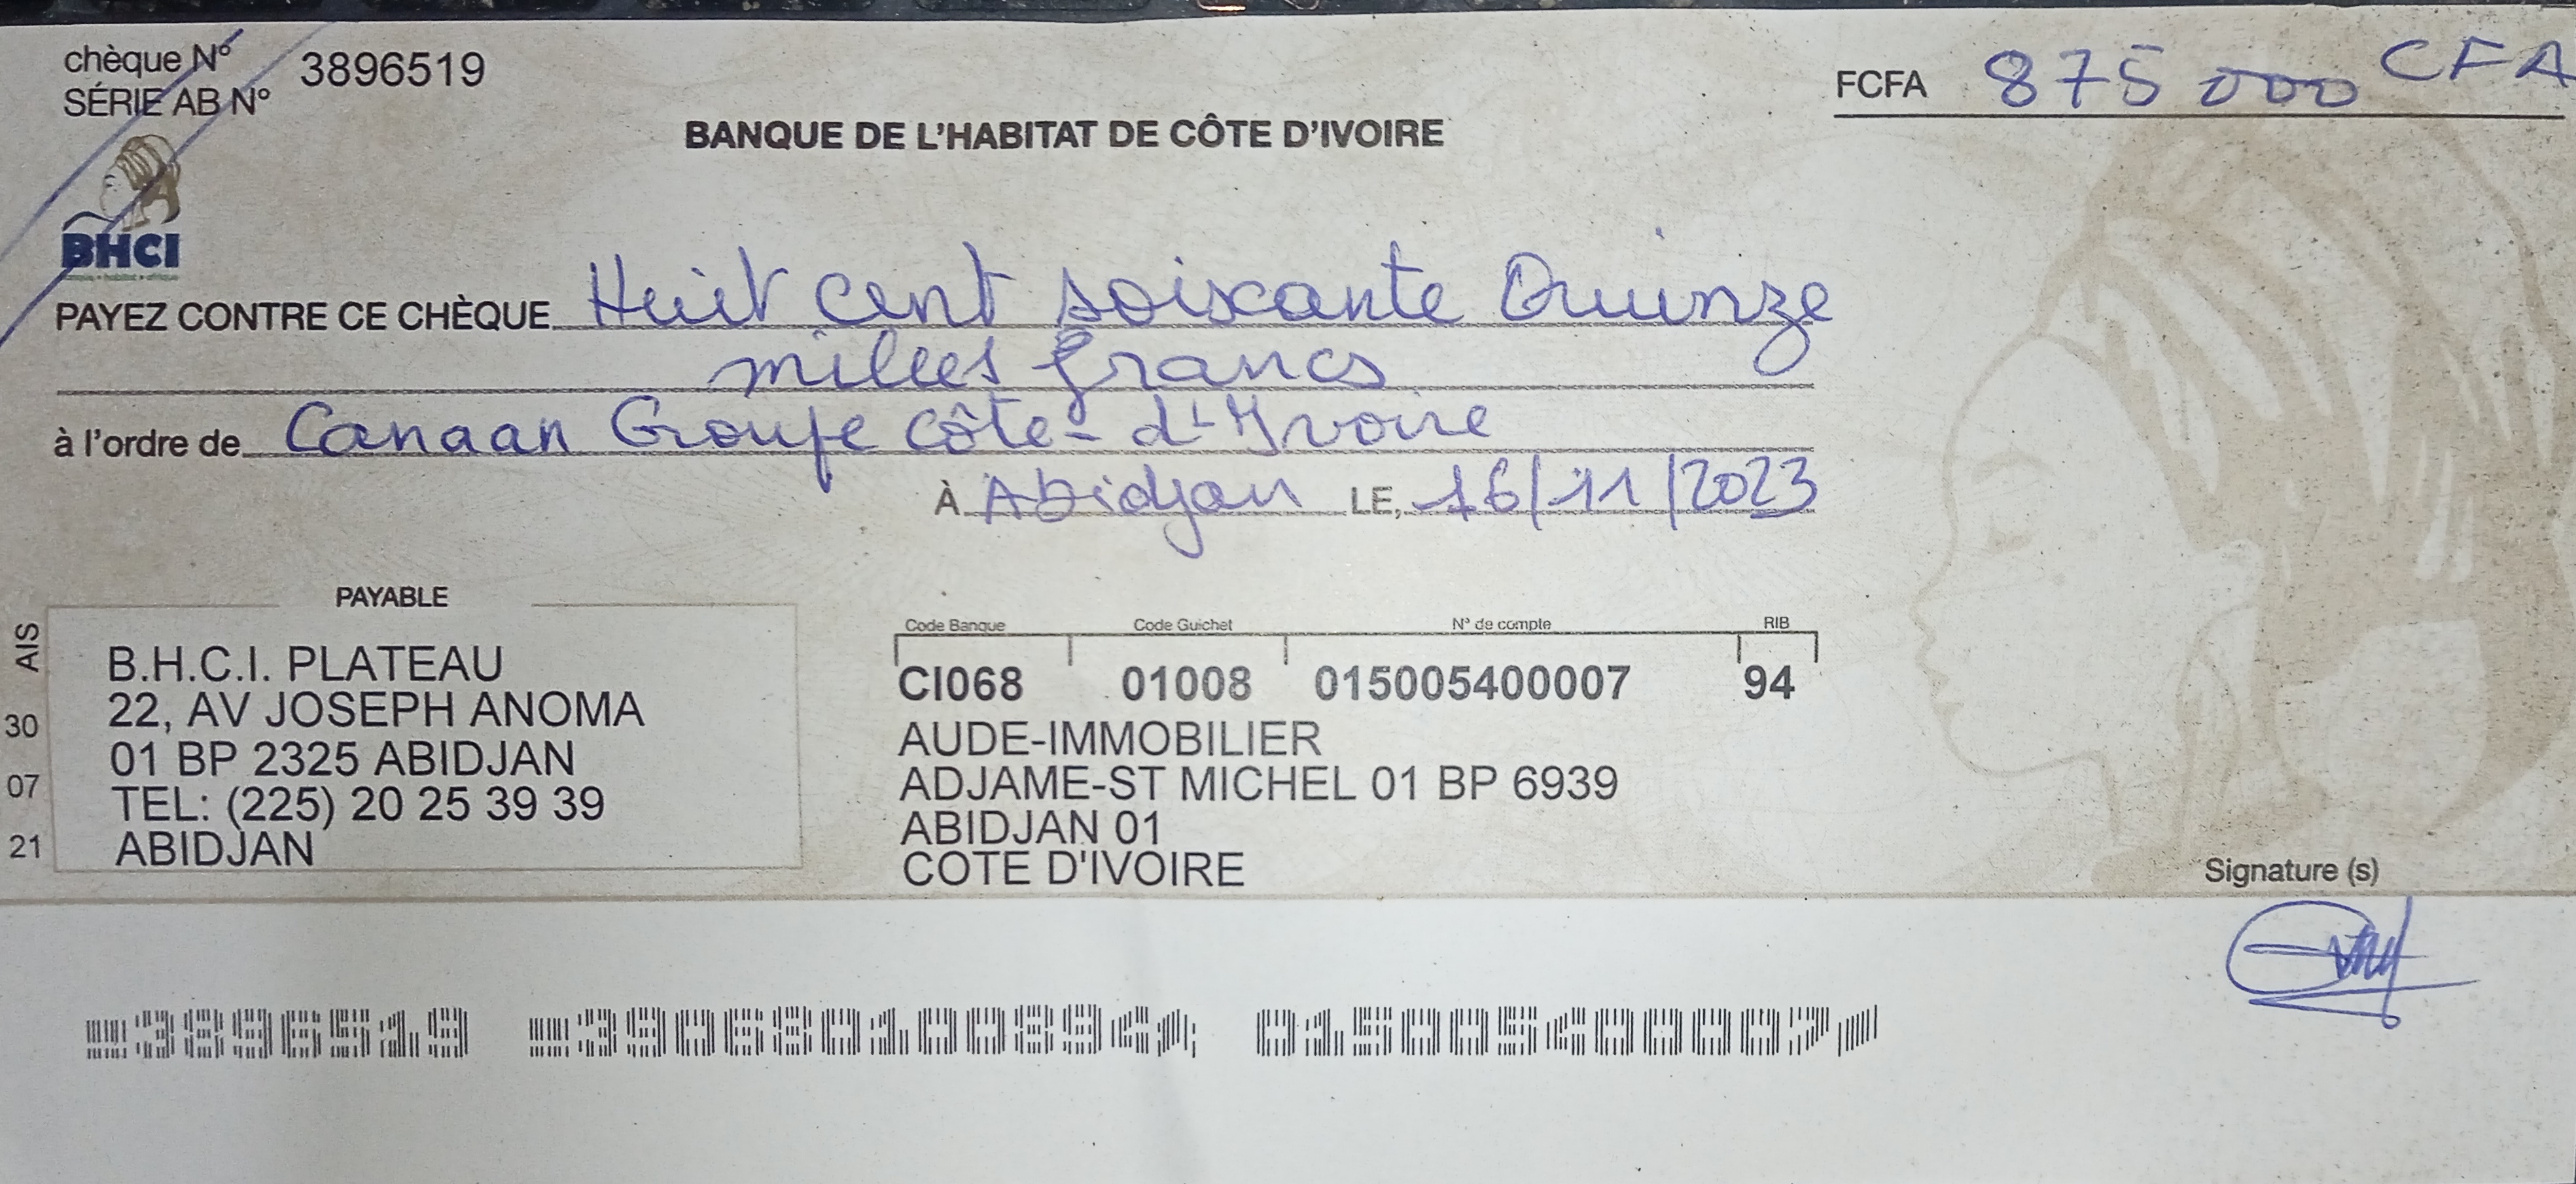 chèque N° 3896519
SÉRIE AB N°
FCFA 875 000 CFA
BANQUE DE L'HABITAT DE CÔTE D'IVOIRE
BHCI
PAYEZ CONTRE CE CHÈQUE Huit cent soixante Quinze
milles francs
à l'ordre de Canaan Groupe Côte-d'Ivoire
À Abidjan LE, 16/11/2023
PAYABLE
B.H.C.I. PLATEAU
22, AV JOSEPH ANOMA
01 BP 2325 ABIDJAN
TEL: (225) 20 25 39 39
ABIDJAN
AIS
30
07
21
Code Banque Code Guichet N° de compte RIB
CI068 01008 015005400007 94
AUDE-IMMOBILIER
ADJAME-ST MICHEL 01 BP 6939
ABIDJAN 01
COTE D'IVOIRE
Signature (s)
3896519 390680100894 015005400007